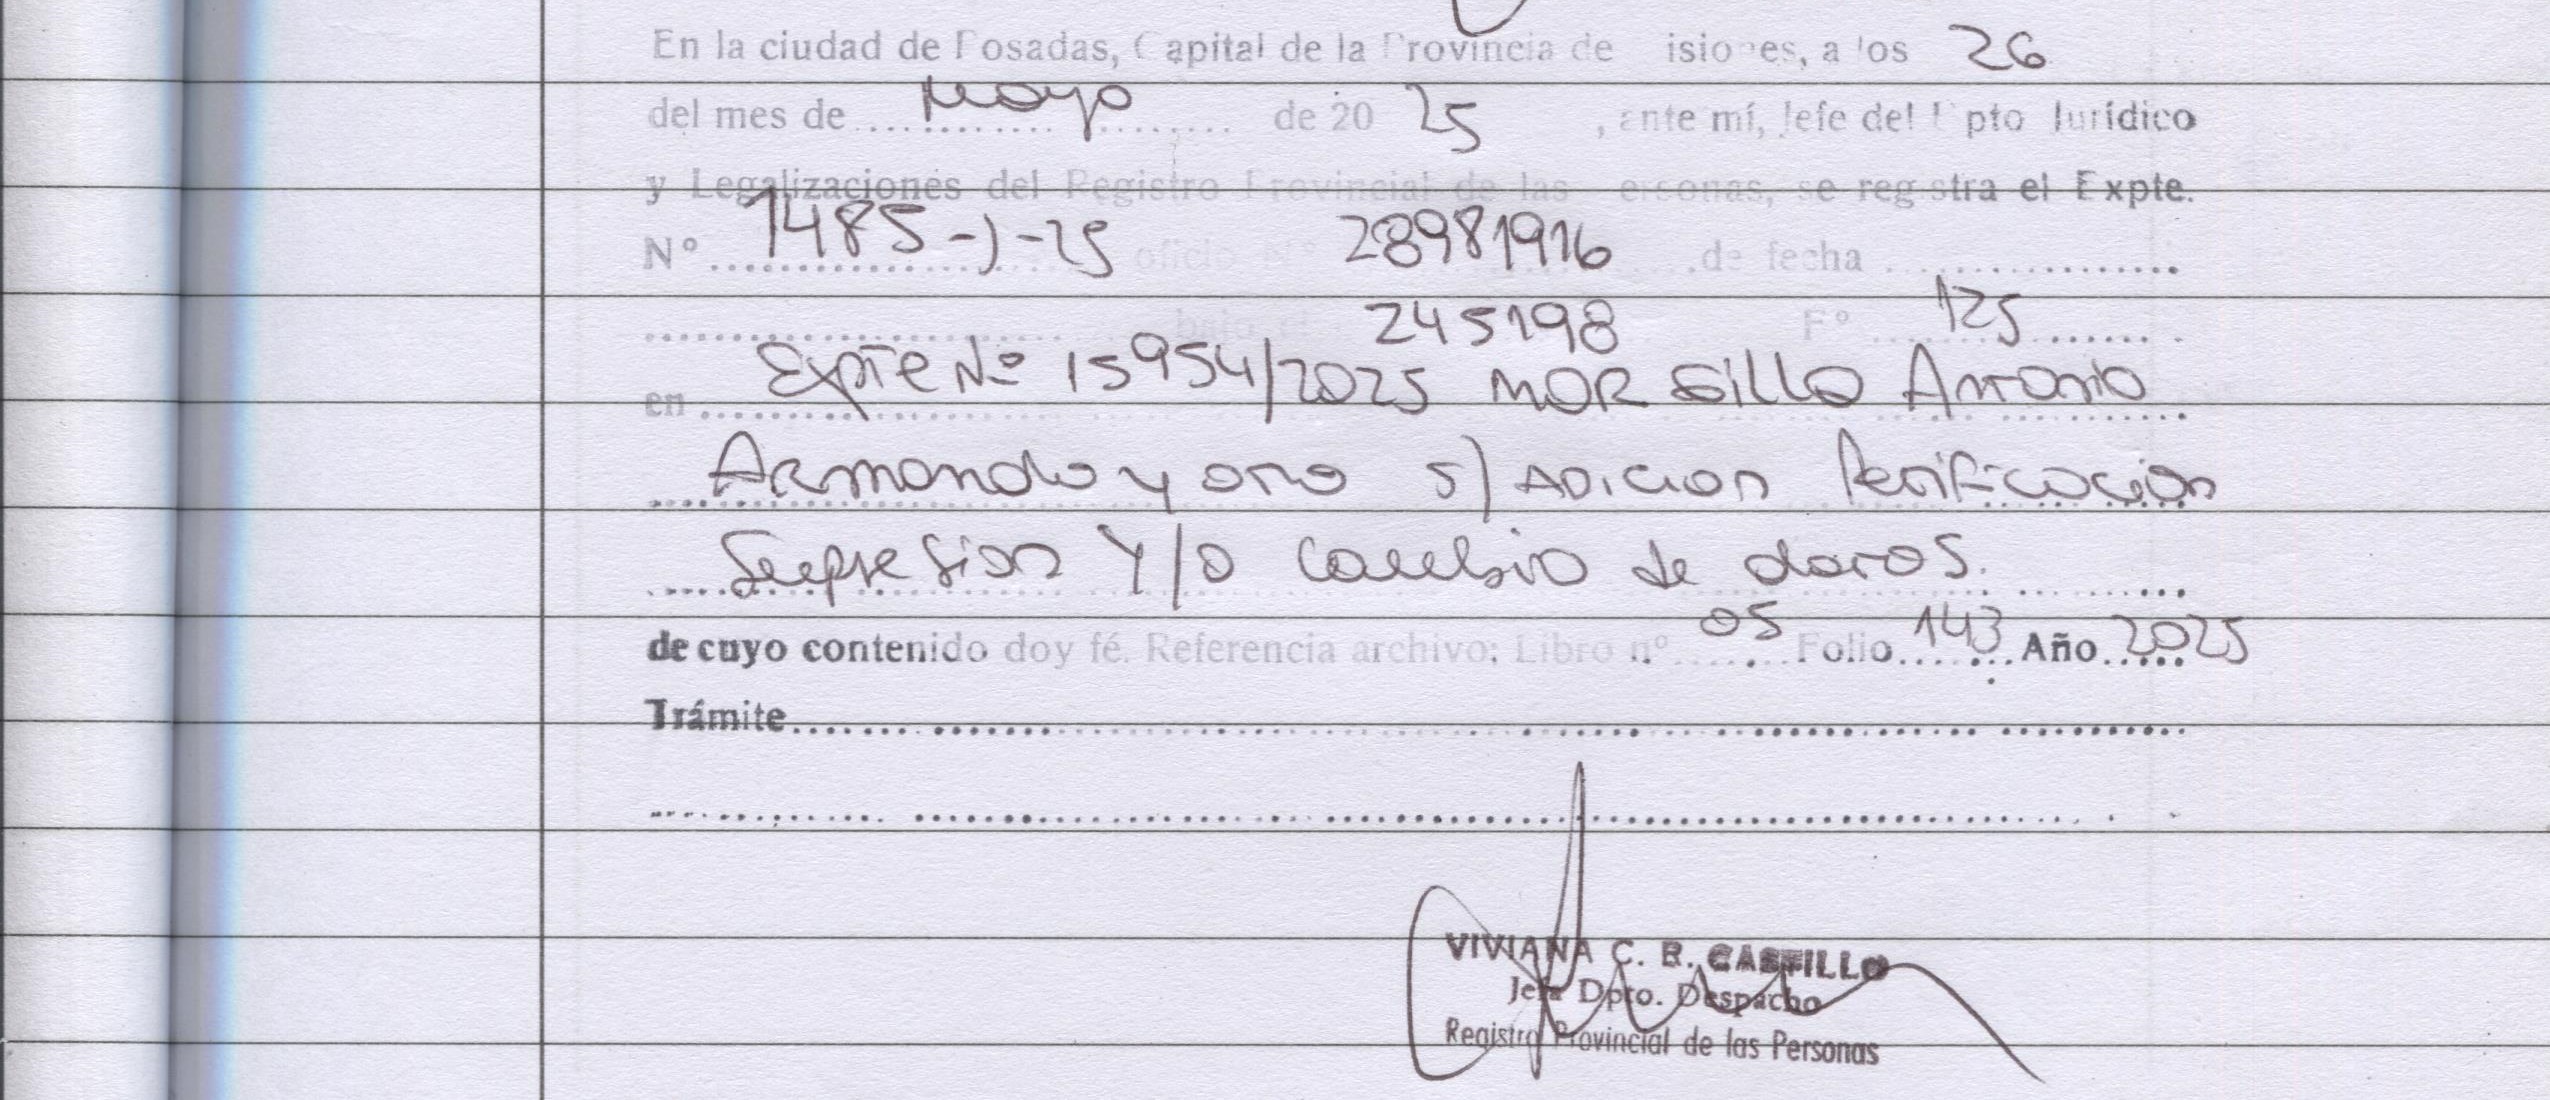 En la ciudad de Posadas, Capital de la Provincia de Misiones, a los 26
del mes de Mayo de 20 25, ante mí, Jefe del Dpto Jurídico
y Legalizaciones del Registro Provincial de las Personas, se registra el Expte.
Nº 1485-J-25 oficio Nº 28981916 de fecha
bajo el 245198 Fº 125
en Expte Nº 15954/2025 MORSILLO Antonio
Armando y otro s/ ADICION Rectificacion
Supresion Y/O Cambio de datos.
de cuyo contenido doy fé. Referencia archivo: Libro nº 05 Folio 143 Año 2025
Trámite
VIVIANA C. B. CASTILLO
Jefa Dpto. Despacho
Registro Provincial de las Personas